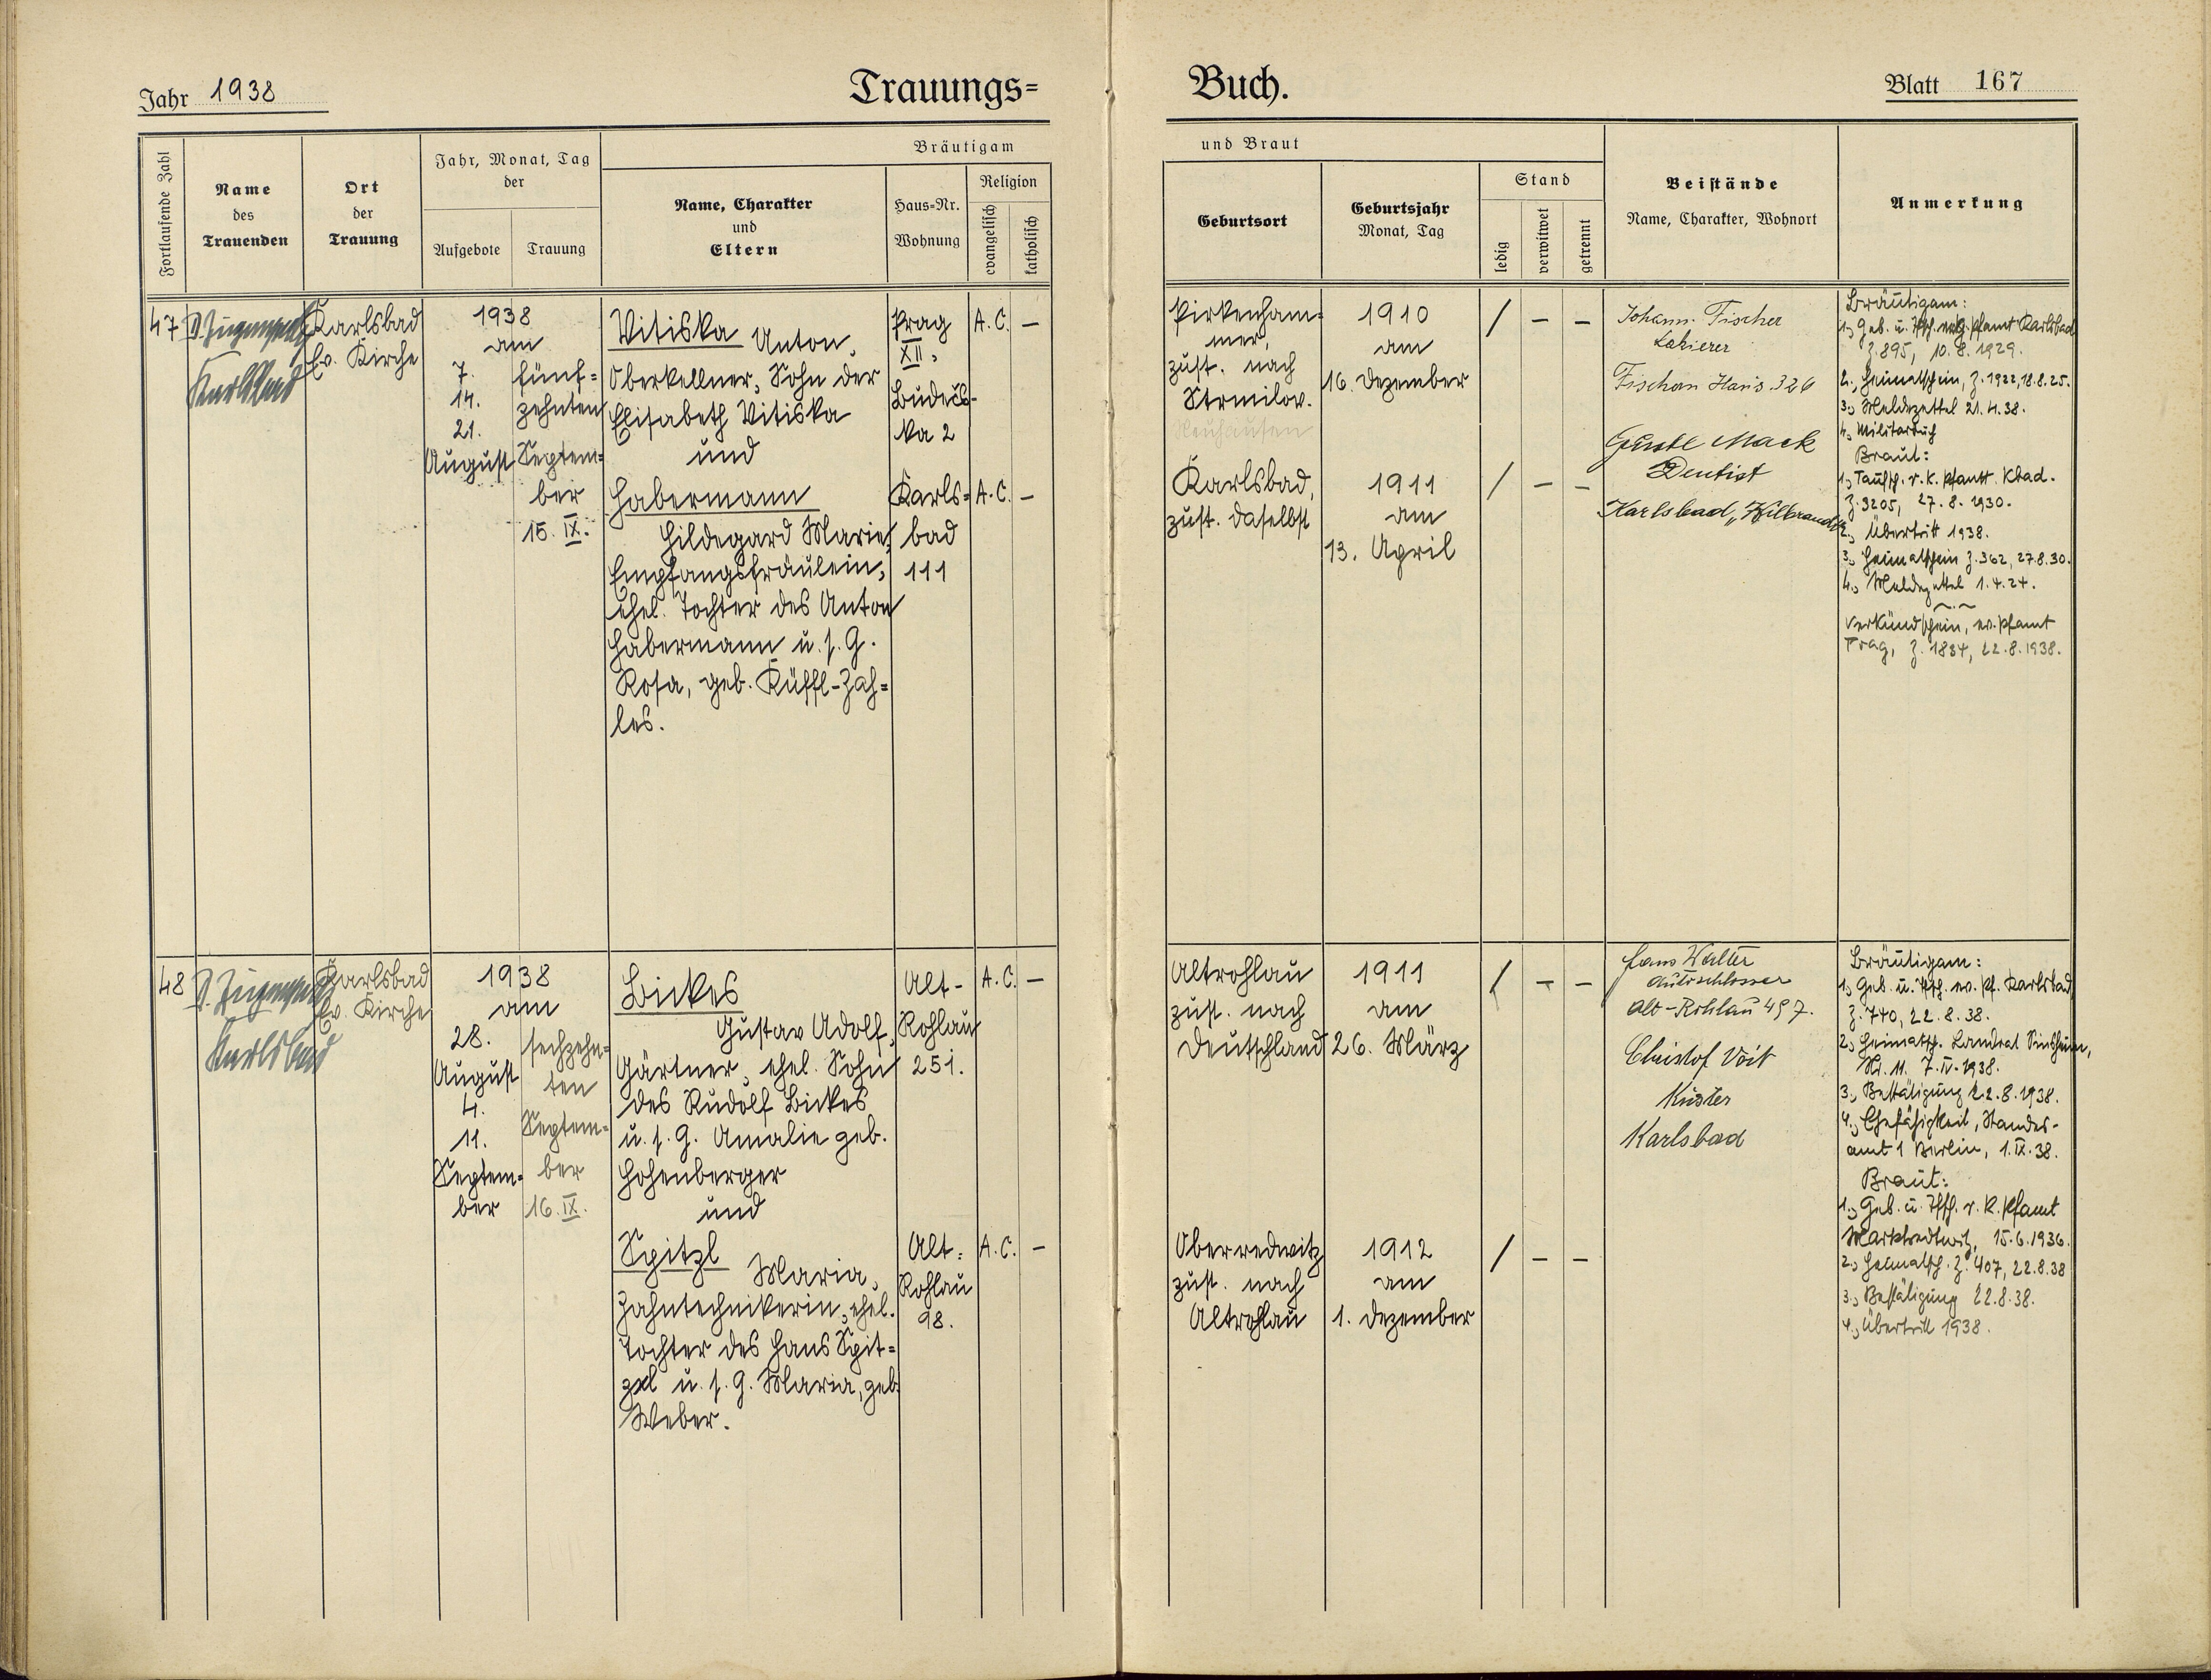 Jahr 1938
Trauungs=
Buch.
Blatt 167
Fortlaufende Zahl
Name
des
Trauenden
Ort
der
Trauung
Jahr, Monat, Tag
der
Aufgebote
Trauung
Bräutigam
Name, Charakter
und
Eltern
Haus=Nr.
Wohnung
Religion
evangelisch
katholisch
und Braut
Geburtsort
Geburtsjahr
Monat, Tag
Stand
ledig
verwitwet
getrennt
Beistände
Name, Charakter, Wohnort
Anmerkung
47
Karlsbad
Karlsbad
Ev. Kirche
1938
am
7.
14.
21.
August
fünf=
zehnten
Septem=
ber
15. IX.
Vitiska Anton,
Oberkellner, Sohn der
Elisabeth Vitiska
und
Habermann
Hildegard Marie,
Empfangsfräulein,
ehel. Tochter des Anton
Habermann u. s. G.
Rosa, geb. Küffl-Zah=
les.
Prag
XII,
Budečs-
ka 2
A. C. –
Karls=
bad
111
A. C. –
Pirkenham=
mer,
zust. nach
Strmilov.
Neuhausen
Karlsbad,
zust. daselbst
1910
am
16. Dezember
1911
am
13. April
/ – –
/ – –
Johann Fischer
Lakierer
Fischern Haus 326
Gustl Mack
Dentist
Karlsbad,
Bräutigam:
1., Geb. u. Tfsch. evg. Pfamt Karlsbad
Z. 895, 10. 8. 1929.
2., Heimatschein, Z. 1922, 18. 8. 25.
3., Meldezettel 21. 4. 38.
4., Militärbuch
Braut:
1., Taufsch. r. k. Pfamt Kbad.
Z. 3205, 27. 8. 1930.
2., Übertritt 1938.
3., Heimatschein Z. 362, 27. 8. 30.
4., Meldezettel 1. 4. 24.
Verkündschein, ev. Pfamt
Prag, Z. 1834, 22. 8. 1938.
48
Karlsbad
Karlsbad
Ev. Kirche
1938
am
28.
August
4.
11.
Septem=
ber
sechzehn=
ten
Septem=
ber
16. IX.
Bickes
Gustav Adolf,
Gärtner, ehel. Sohn
des Rudolf Bickes
u. s. G. Amalie geb.
Hohenberger
und
Spitzl
Maria,
Zahntechnikerin, ehel.
Tochter des Hans Spit=
zl u. s. G. Maria, geb.
Weber.
Alt-
Rohlau
251.
A. C. –
Alt=
Rohlau
98.
A. C. –
Altrohlau
zust. nach
Deutschland
Oberredwitz
zust. nach
Altrohlau
1911
am
26. März
1912
am
1. Dezember
/ – –
/ – –
Hans Walter
Autoschlosser
Alt-Rohlau 497.
Christof Voit
Küster
Karlsbad
Bräutigam:
1., Geb. u. Tfsch. ev. Pf. Karlsbad,
Z. 740, 22. 8. 38.
2., Heimatsch. Landrat Sinsheim,
Nr. 11. 7. IV. 1938.
3., Bestätigung 22. 8. 1938.
4., Ehefähigkeit, Standes-
amt 1 Berlin, 1. IX. 38.
Braut:
1., Geb. u. Tfsch. r. k. Pfamt
Marktredwitz, 15. 6. 1936.
2., Heimatsch. Z. 407, 22. 8. 38
3., Bestätigung 22. 8. 38.
4., Übertritt 1938.